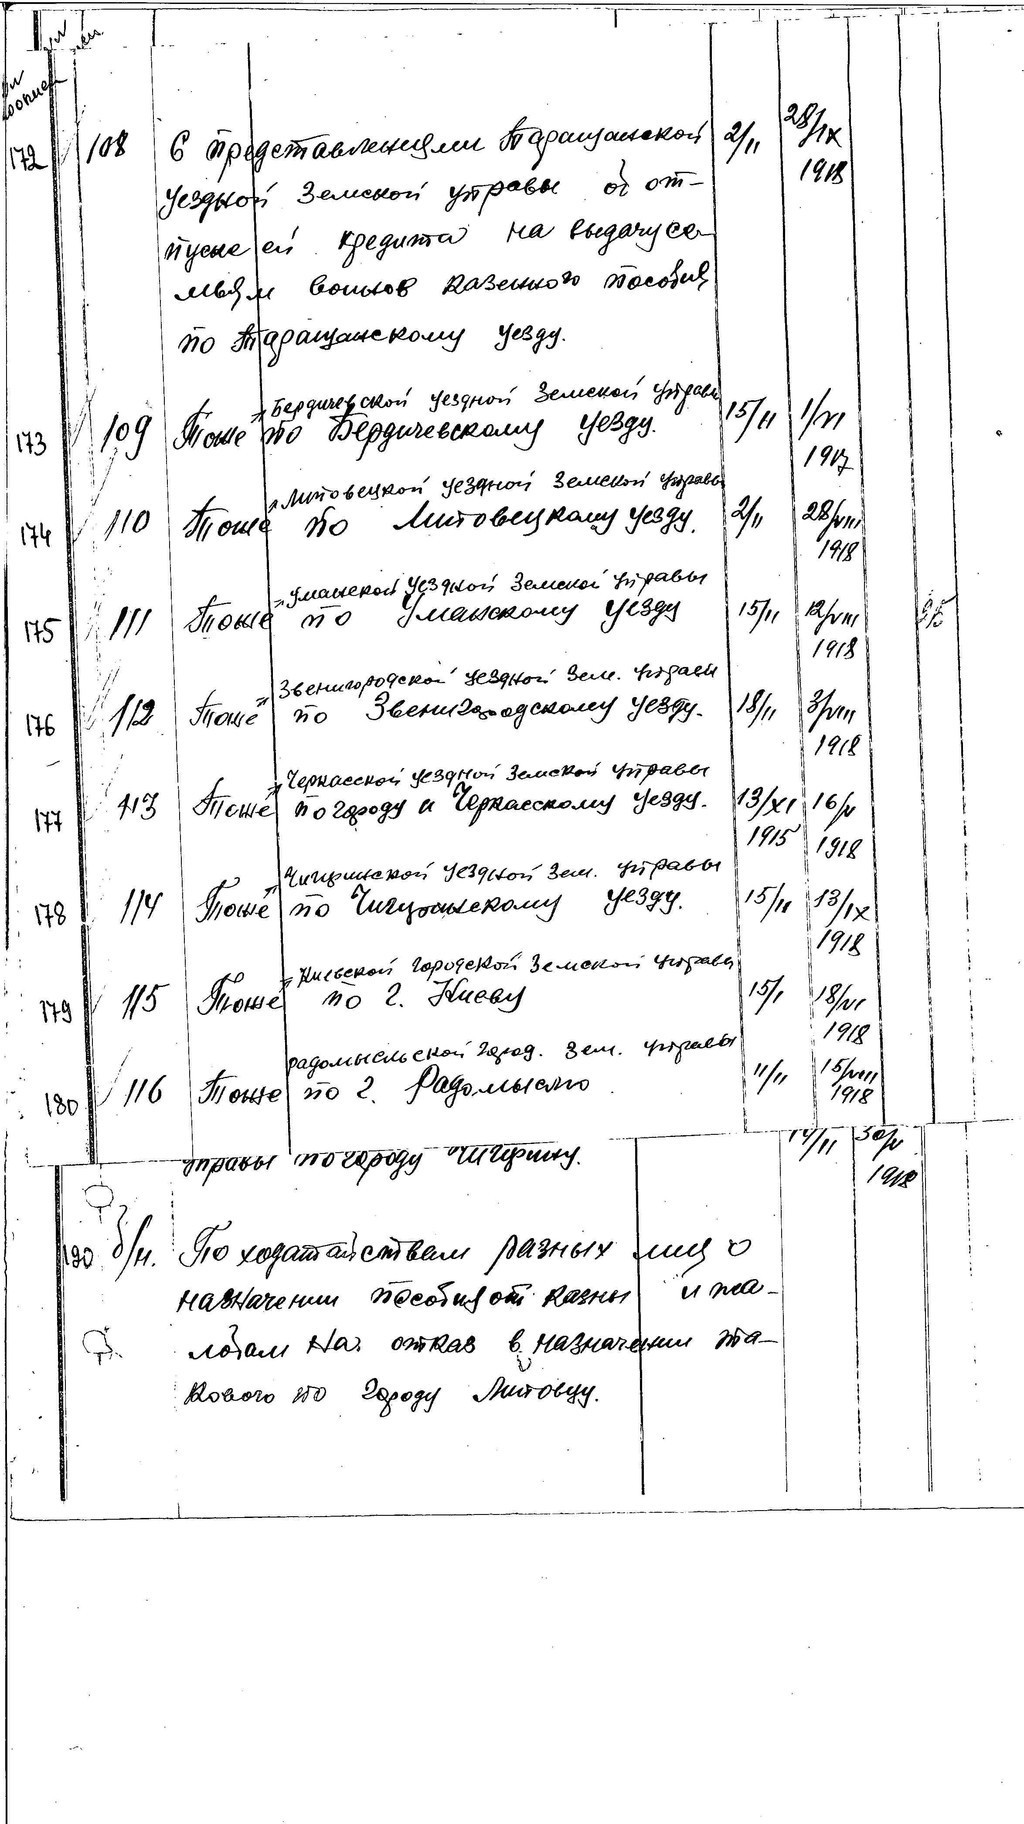 172 108 С представлениями Таращанской 2/II 28/IX
уездной Земской управы об от- 1918
пуске ей кредита на выдачу се-
мьям воинов казенного пособия
по Таращанскому уезду.
" Бердичевской уездной Земской управы
173 109 Тоже по Бердичевскому уезду. 15/II 1/VI
1917
" Липовецкой уездной Земской управы
174 110 Тоже по Липовецкому уезду. 2/II 28/VIII
1918
" Уманской уездной Земской управы
175 111 Тоже по Уманскому уезду 15/II 12/VIII
1918
" Звенигородской уездной Зем. управы
176 112 Тоже по Звенигородскому уезду. 18/II 3/VIII
1918
" Черкасской уездной Земской управы
177 113 Тоже по городу и Черкасскому уезду. 13/XI 16/V
1915 1918
" Чигиринской уездной Зем. управы
178 114 Тоже по Чигиринскому уезду. 15/II 13/IX
1918
" Киевской городской Земской управы
179 115 Тоже по г. Киеву 15/I 18/VI
1918
Радомысльской город. Зем. управы
180 116 Тоже по г. Радомыслю 11/II 15/VIII
1918
управы по городу Чигирину. 14/II 30/V
1918
190 б/н. По ходатайствам разных лиц о
назначении пособия от казны и жа-
лобам на отказ в назначении та-
кового по городу Липовцу.